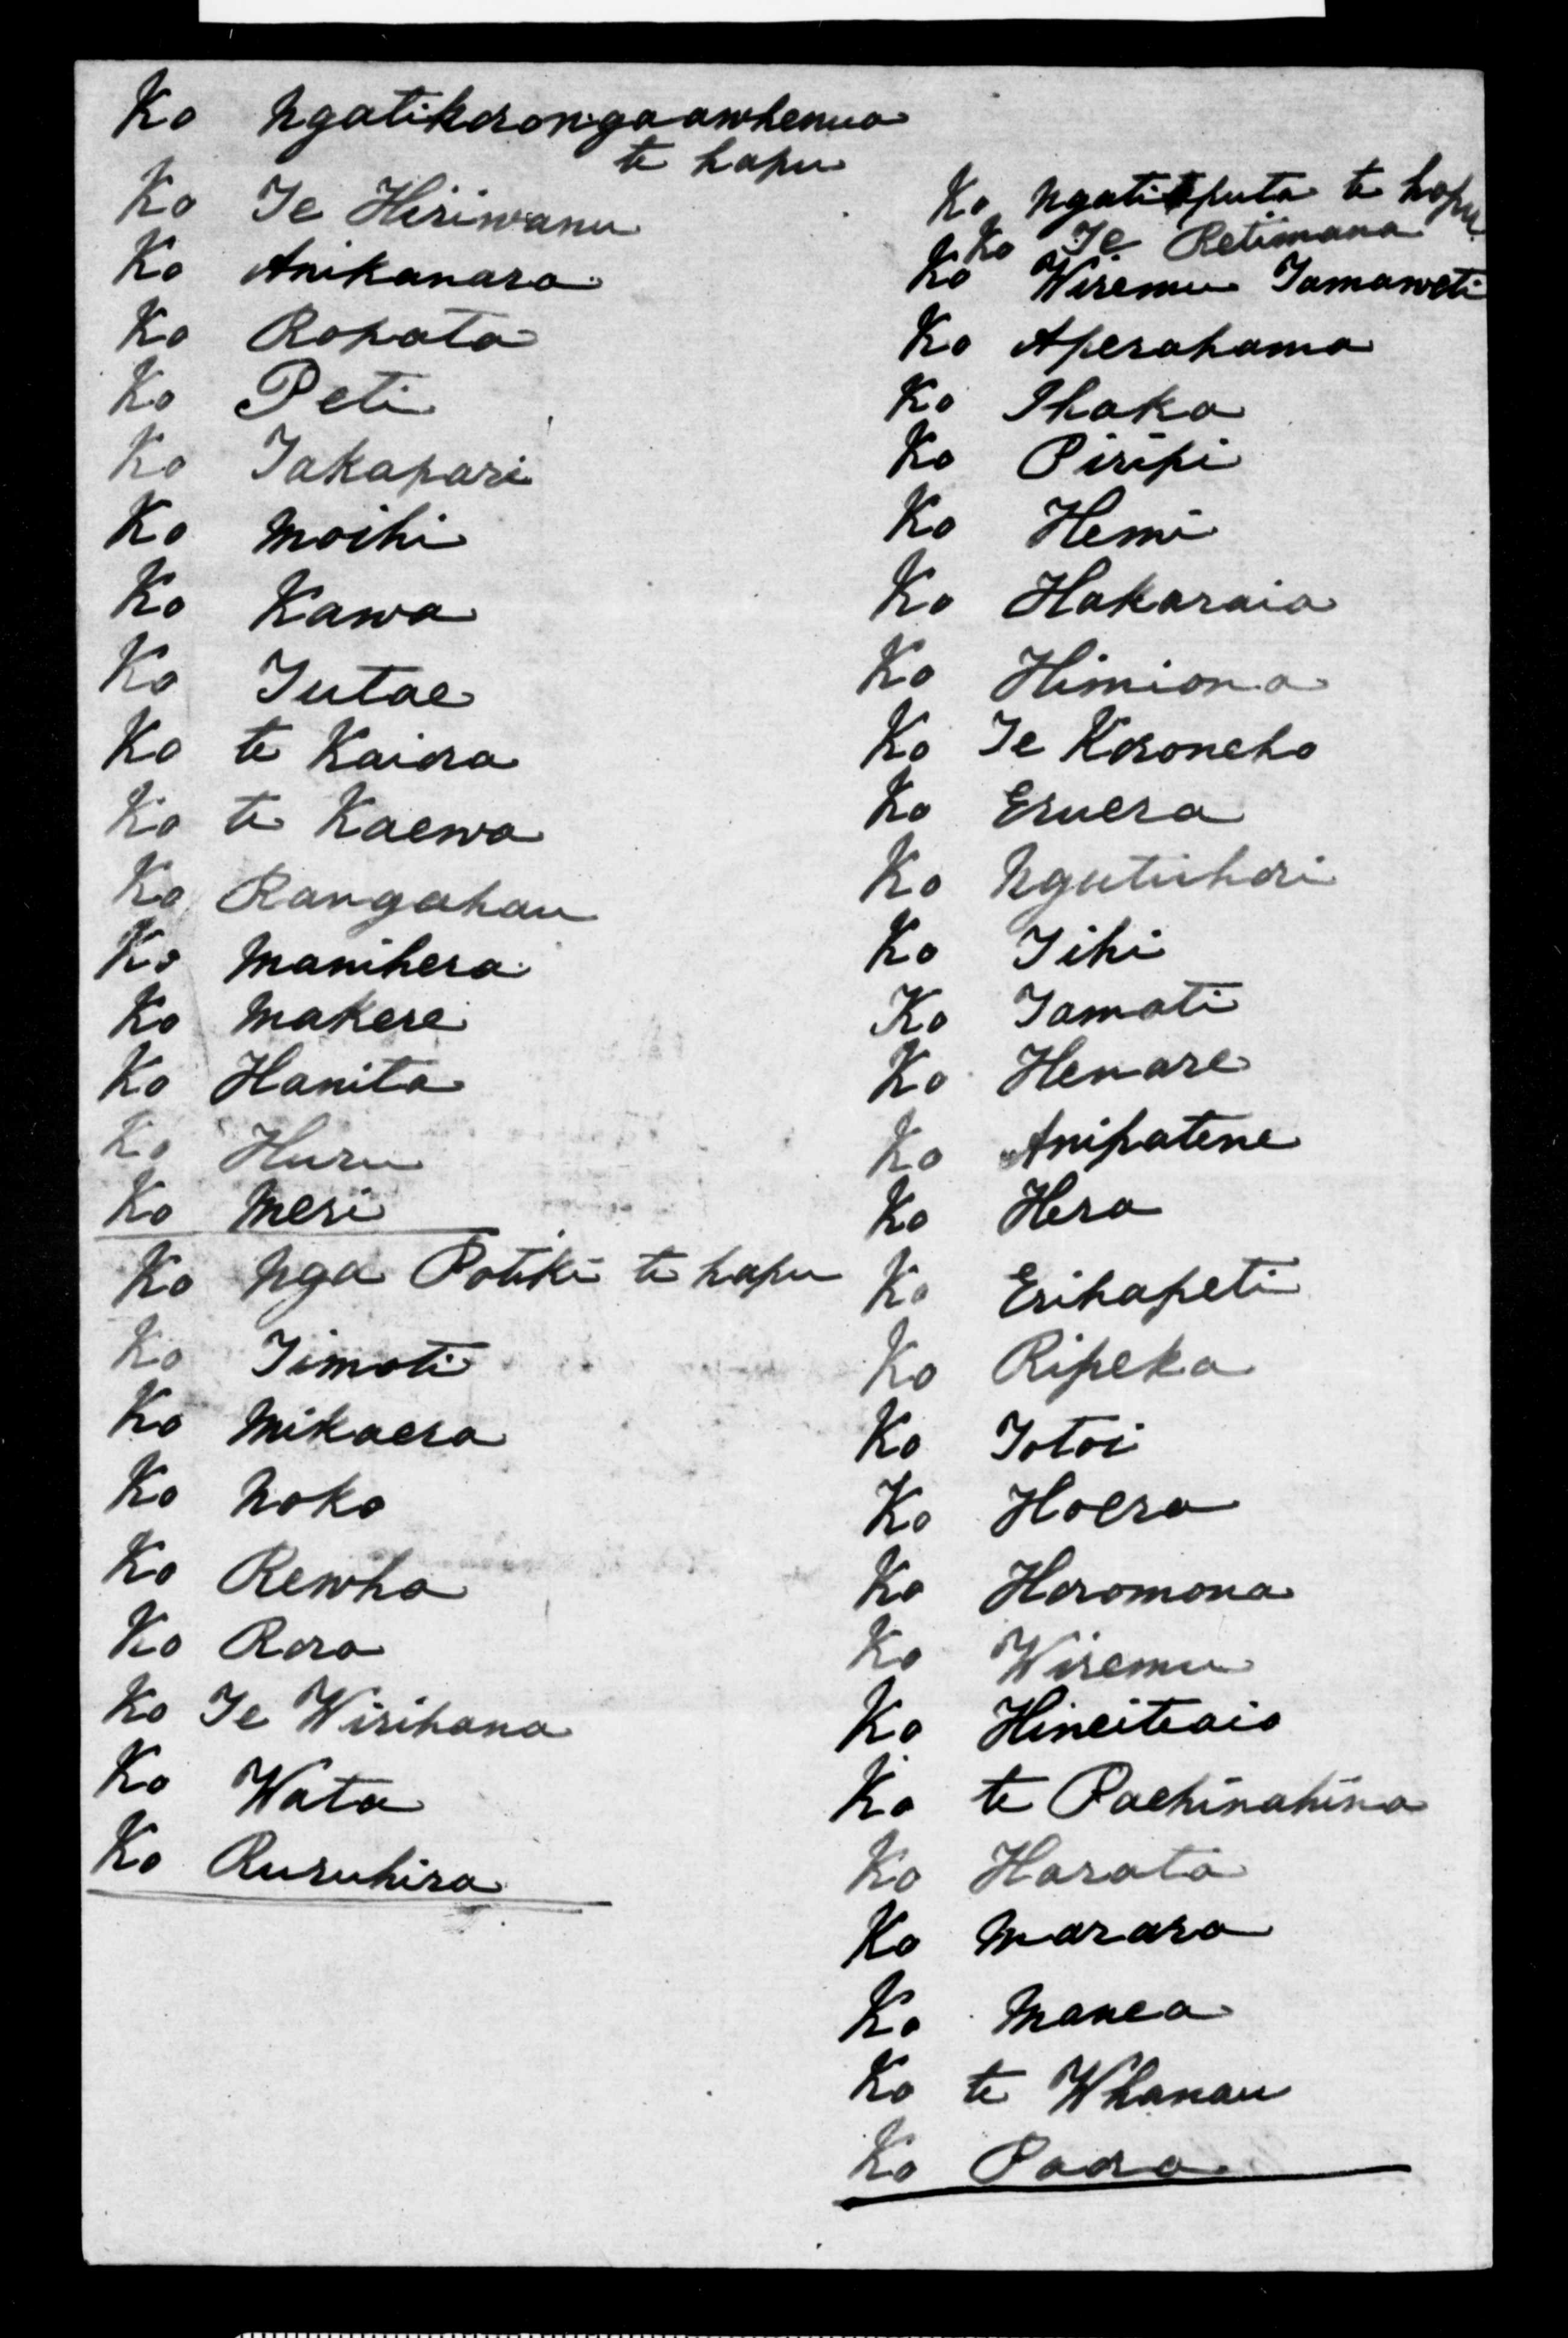 Ko Ngatikorongaawhenua
te hapu
Ko Te Hiriwanu
Ko Anikanara
Ko Ropata
Ko Peti
Ko Takapari
Ko Moihi
Ko Kawa
Ko Tutae
Ko te Kaiora
Ko te Kaewa
Ko Rangahau
Ko Manihera
Ko Makere
Ko Hanita
Ko Huru
Ko Meri
Ko Nga Potiki te hapu
Ko Timoti
Ko Mikaera
Ko Noko
Ko Rewha
Ko Rora
Ko Te Wirihana
Ko Wata
Ko Ruruhira
Ko te hapu
Ko Te Retimana
Ko Wiremu Tamaweti
Ko Aperahama
Ko Ihaka
Ko Piripi
Ko Hemi
Ko Hakaraia
Ko Himiona
Ko Te Koroneho
Ko Eruera
Ko Ngutuhori
Ko Tihi
Ko Tamati
Ko Henare
Ko Anipatene
Ko Hera
Ko Erihapeti
Ko Ripeka
Ko Totoi
Ko Hoera
Ko Horomona
Ko Wiremu
Ko Hineiteaio
Ko te Paehinahina
Ko Harata
Ko Marara
Ko Manea
Ko te Whanau
Ko Paora